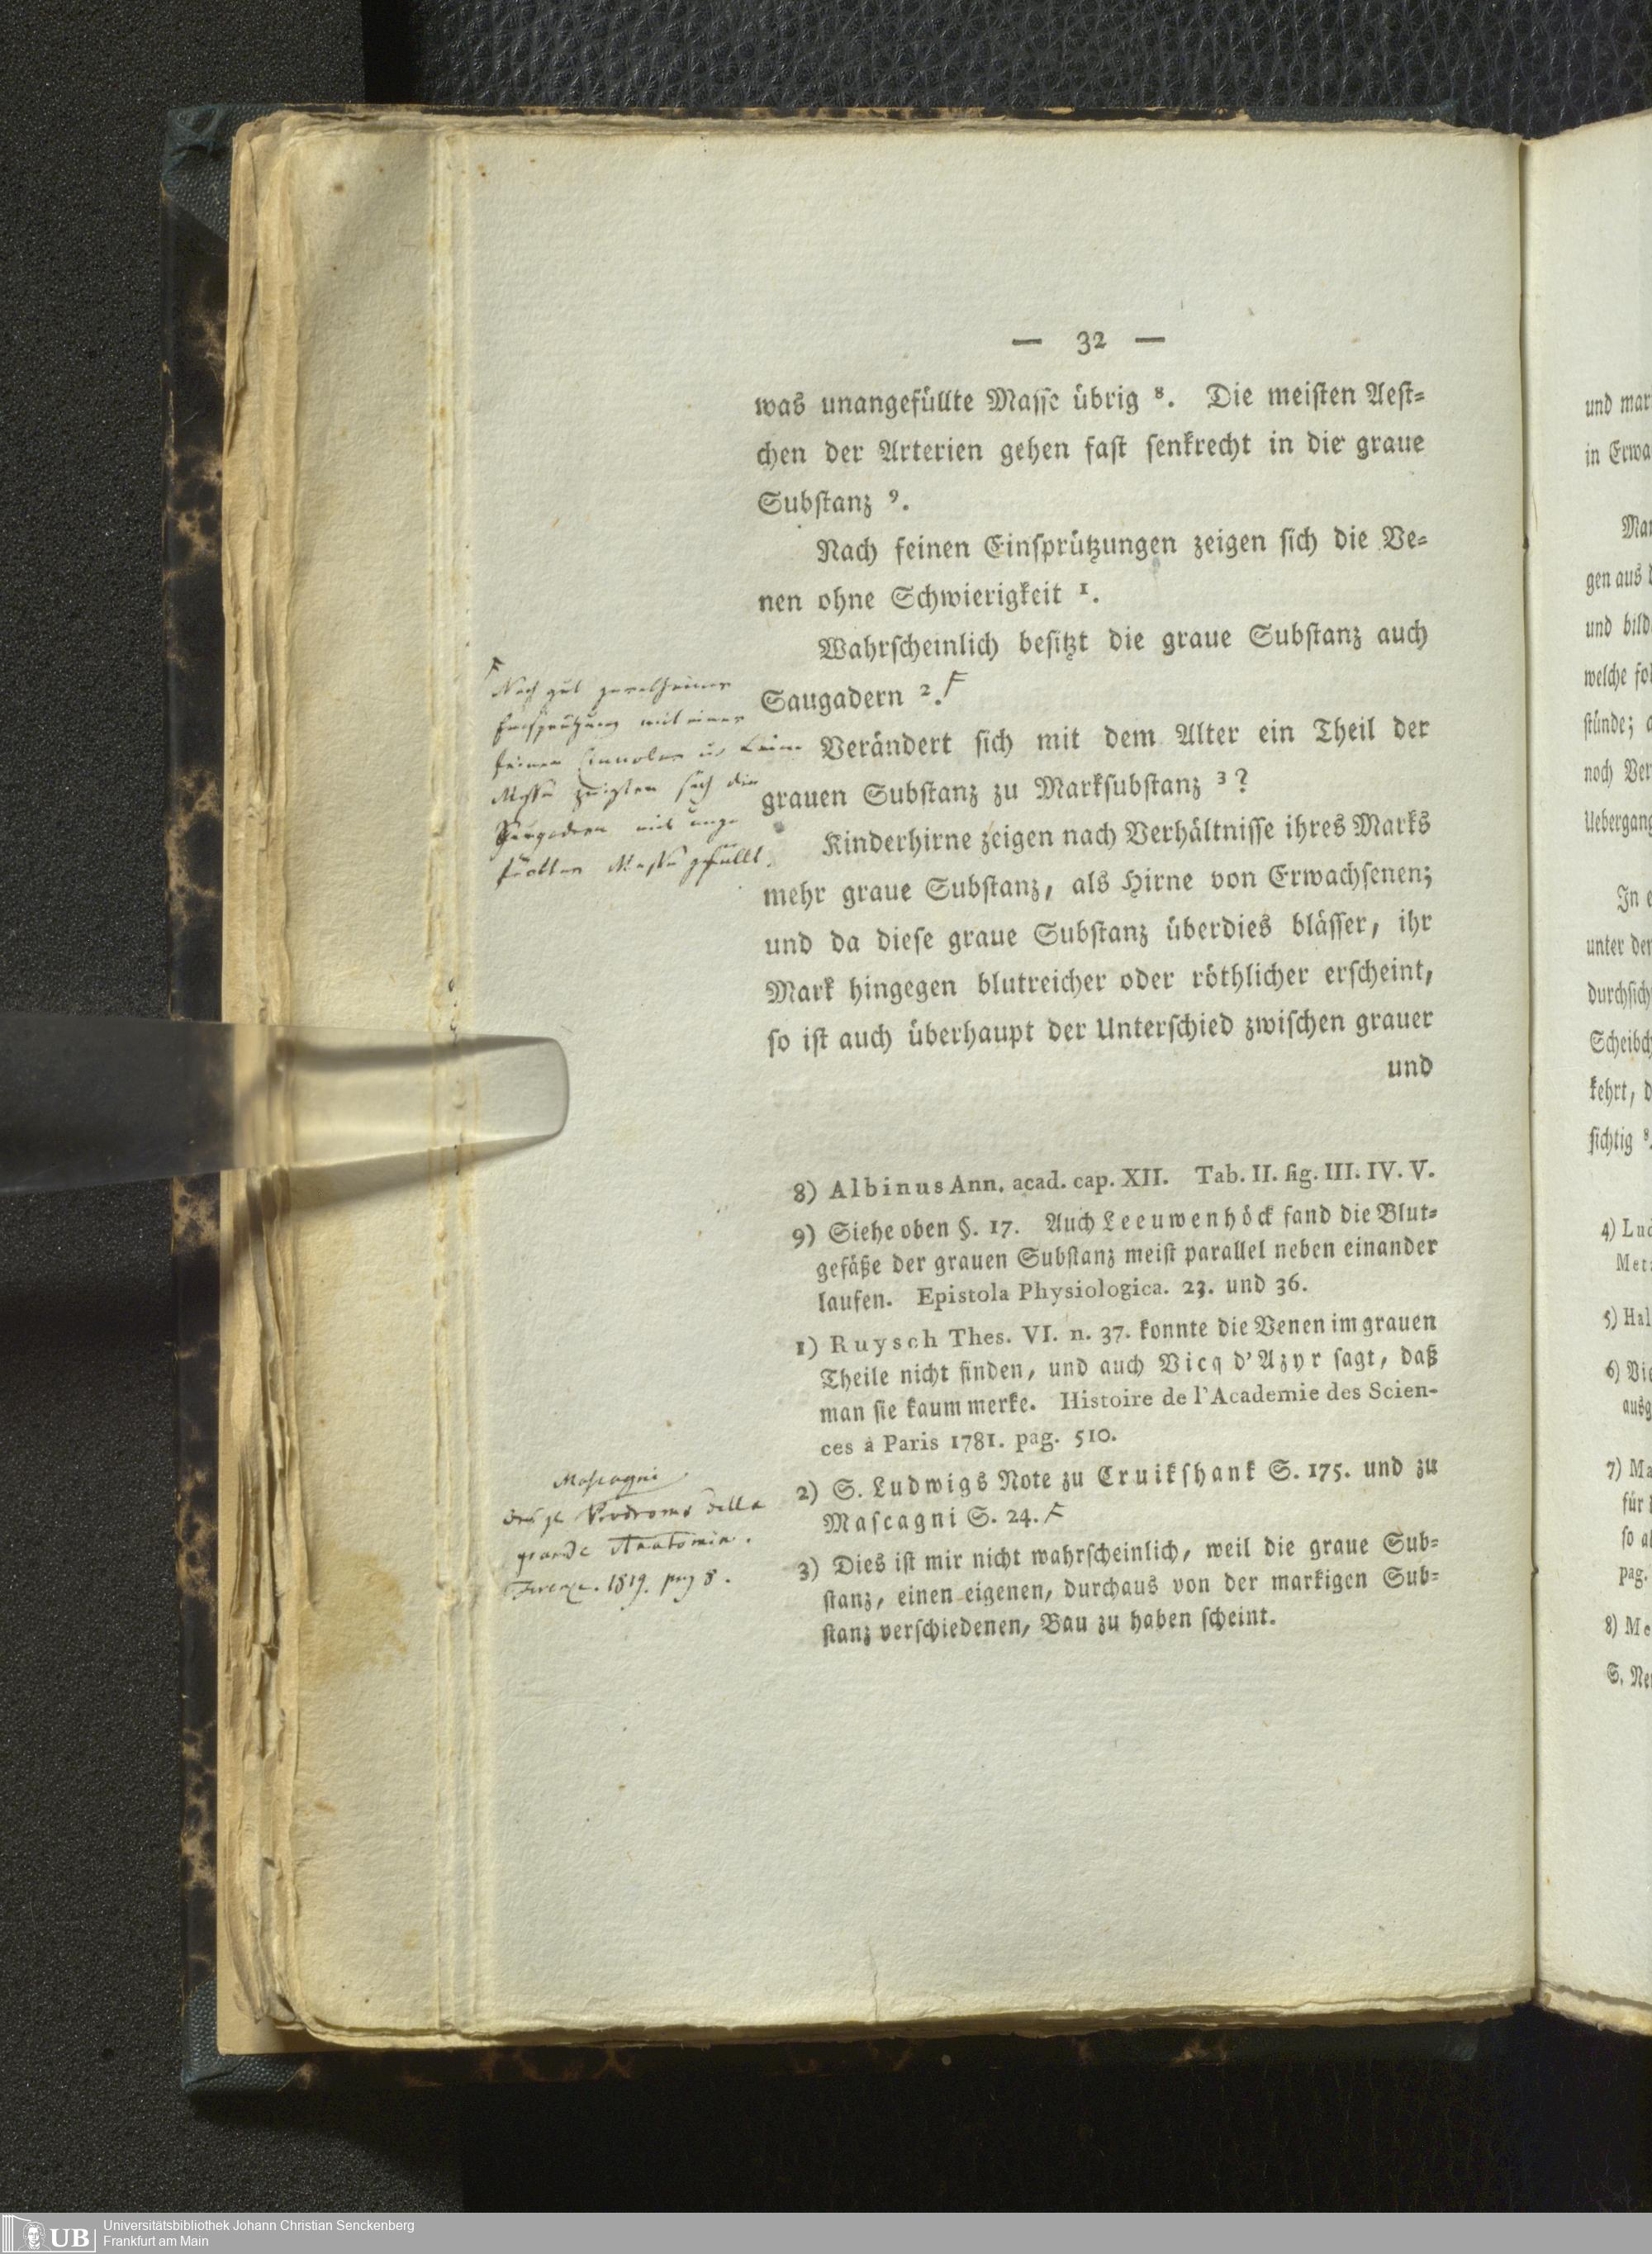 — 32 —
was unangefüllte Masse übrig ⁸. Die meisten Aest-
chen der Arterien gehen fast senkrecht in die graue
Substanz ⁹.
Nach feinen Einsprützungen zeigen sich die Ve-
nen ohne Schwierigkeit ¹.
Wahrscheinlich besitzt die graue Substanz auch
Saugadern ².
Verändert sich mit dem Alter ein Theil der
grauen Substanz zu Marksubstanz ³?
Kinderhirne zeigen nach Verhältnisse ihres Marks
mehr graue Substanz, als Hirne von Erwachsenen;
und da diese graue Substanz überdies blässer, ihr
Mark hingegen blutreicher oder röthlicher erscheint,
so ist auch überhaupt der Unterschied zwischen grauer
und
8) Albinus Ann. acad. cap. XII. Tab. II. fig. III. IV. V.
9) Siehe oben §. 17. Auch Leeuwenhöck fand die Blut-
gefäße der grauen Substanz meist parallel neben einander
laufen. Epistola Physiologica. 23. und 36.
1) Ruysch Thes. VI. n. 37. konnte die Venen im grauen
Theile nicht finden, und auch Vicq d'Azyr sagt, daß
man sie kaum merke. Histoire de l'Academie des Scien-
ces à Paris 1781. pag. 510.
2) S. Ludwigs Note zu Cruikshank S. 175. und zu
Mascagni S. 24.
3) Dies ist mir nicht wahrscheinlich, weil die graue Sub-
stanz, einen eigenen, durchaus von der markigen Sub-
stanz verschiedenen, Bau zu haben scheint.
Nach gut
Einsprützung mit einer
feinen Zinnober u. Leim
Masse zeigten sich die
Saugadern mit
Masse gefüllt.
Mascagni
Prodromo della
grande Anatomia.
Firenze. 1819. pag 8.
und mar
in Erwa
Mar
gen aus
und bild
welche fo
stünde;
noch Ver
Uebergang
In e
unter der
durchsich
Scheibch
kehrt, d
sichtig ⁸.
4) Lud
5) Hal
6) Vic
ausg
7) Ma
für
so a
pag.
8) Me
Universitätsbibliothek Johann Christian Senckenberg
Frankfurt am Main
UB